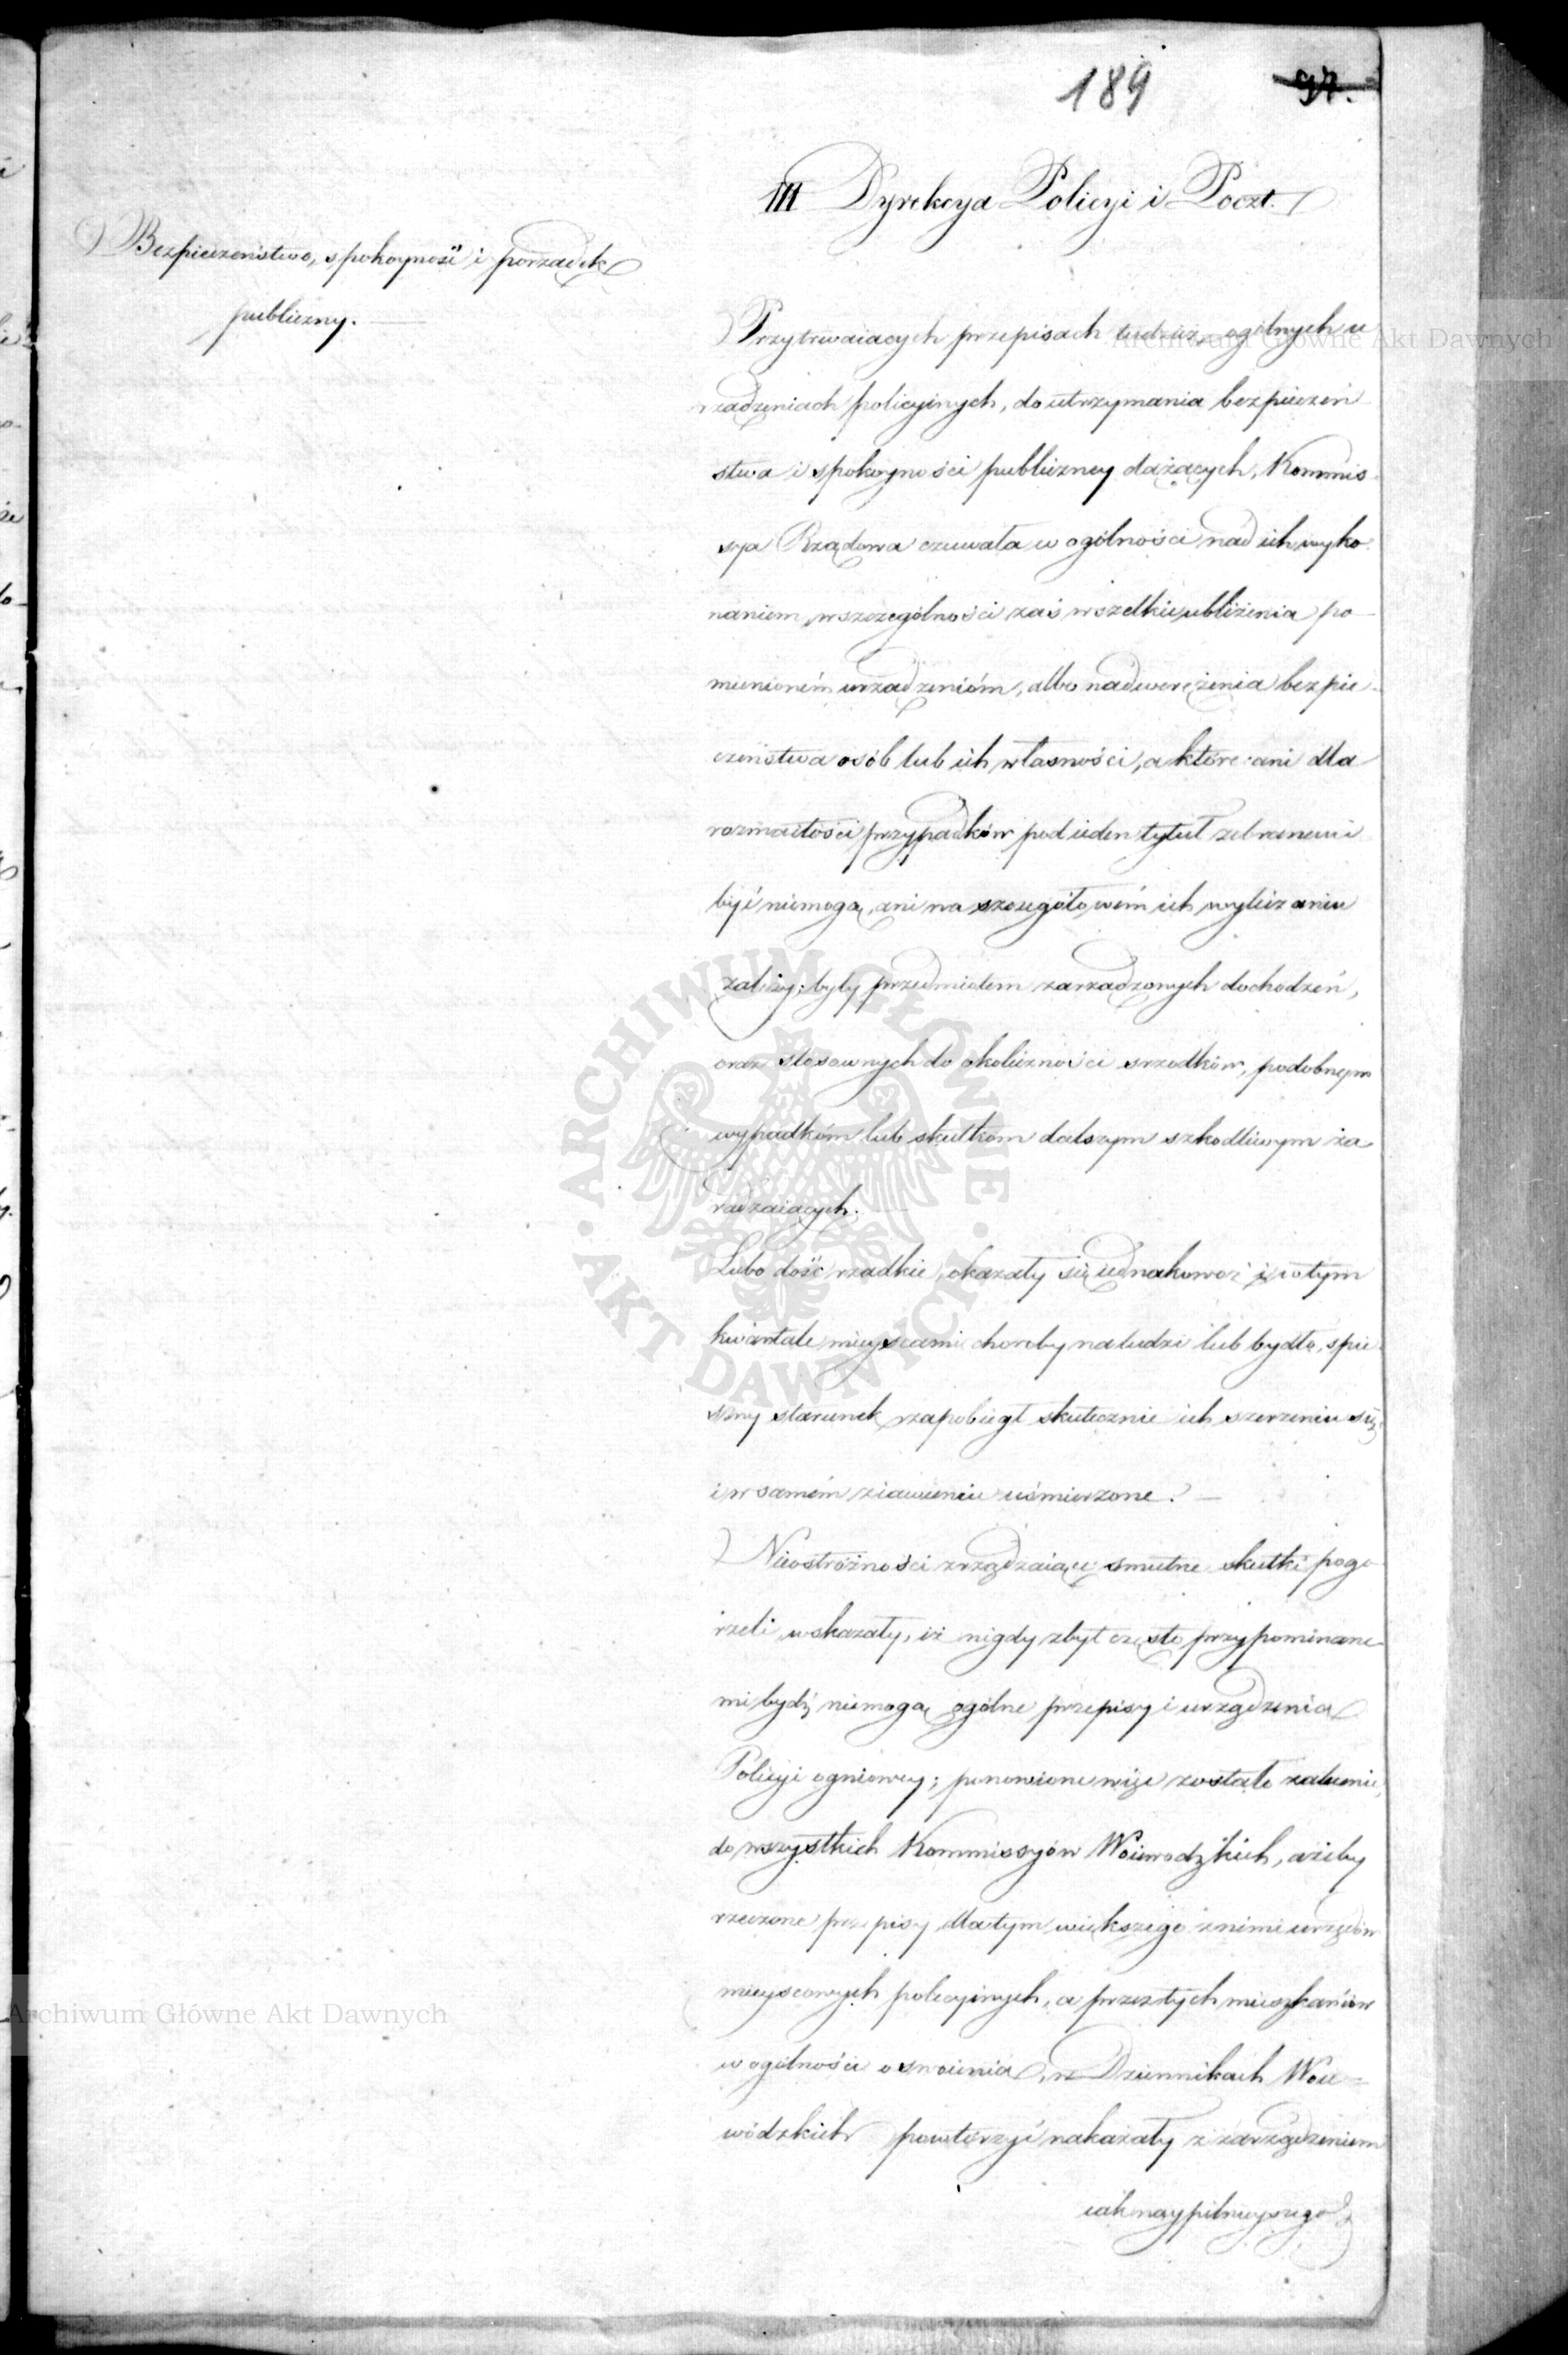 189 97.
III Dyrekcya Policyi i Poczt.
Bezpieczeństwo, spokoyność i porządek
publiczny.
Przy trwaiących przepisach tudzież ogólnych u
rządzeniach policyinych, do utrzymania bezpieczeń
stwa i spokoyności publiczney dążących, Kommis
sya Rządowa czuwała w ogólności nad ich wyko
naniem, w szczególności zaś wszelkie ubliżenia po
mienioném urządzenióm, albo nadwerężenia bezpie
czeństwa osób lub ich własności, a które ani dla
rozmaitości przypadków pod ieden tytuł zebranemi
być niemogą, ani na szczegółowém ich wyliczaniu
zależy; były przedmiotem zarządzonych dochodzeń,
oraz stosownych do okoliczności srzodków, podobnym
wypadkóm lub skutkom dalszym szkodliwym za
radzaiących.
Lubo dość rzadkie, okazały się iednakowoż i w tym
kwartale mieyscami choroby na ludzi lub bydło, spie
szny starunek zapobiegł skutecznie ich szerzeniu się
i w samém ziawieniu uśmierzone.
Nieostrożności zrządzaiące smutne skutki pogo
rzeli wskazały, iż nigdy zbyt często przypominane
mi bydź niemogą ogólne przepisy i urządzenia
Policyi ogniowey; ponowione więc zostało zalecenie
do wszystkich Kommissyów Woiewodzkich, ażeby
rzeczone przepisy dla tym większego z nimi urzędów
mieyscowych policyinych, a przez tych mieszkańców
w ogólności oswoienia, w Dziennikach Woie=
wódzkich powtórzyć nakazały z zarządzeniem
iak naypilnieyszego
Archiwum Główne Akt Dawnych
ARCHIWUM GŁÓWNE AKT DAWNYCH
Archiwum Główne Akt Dawnych